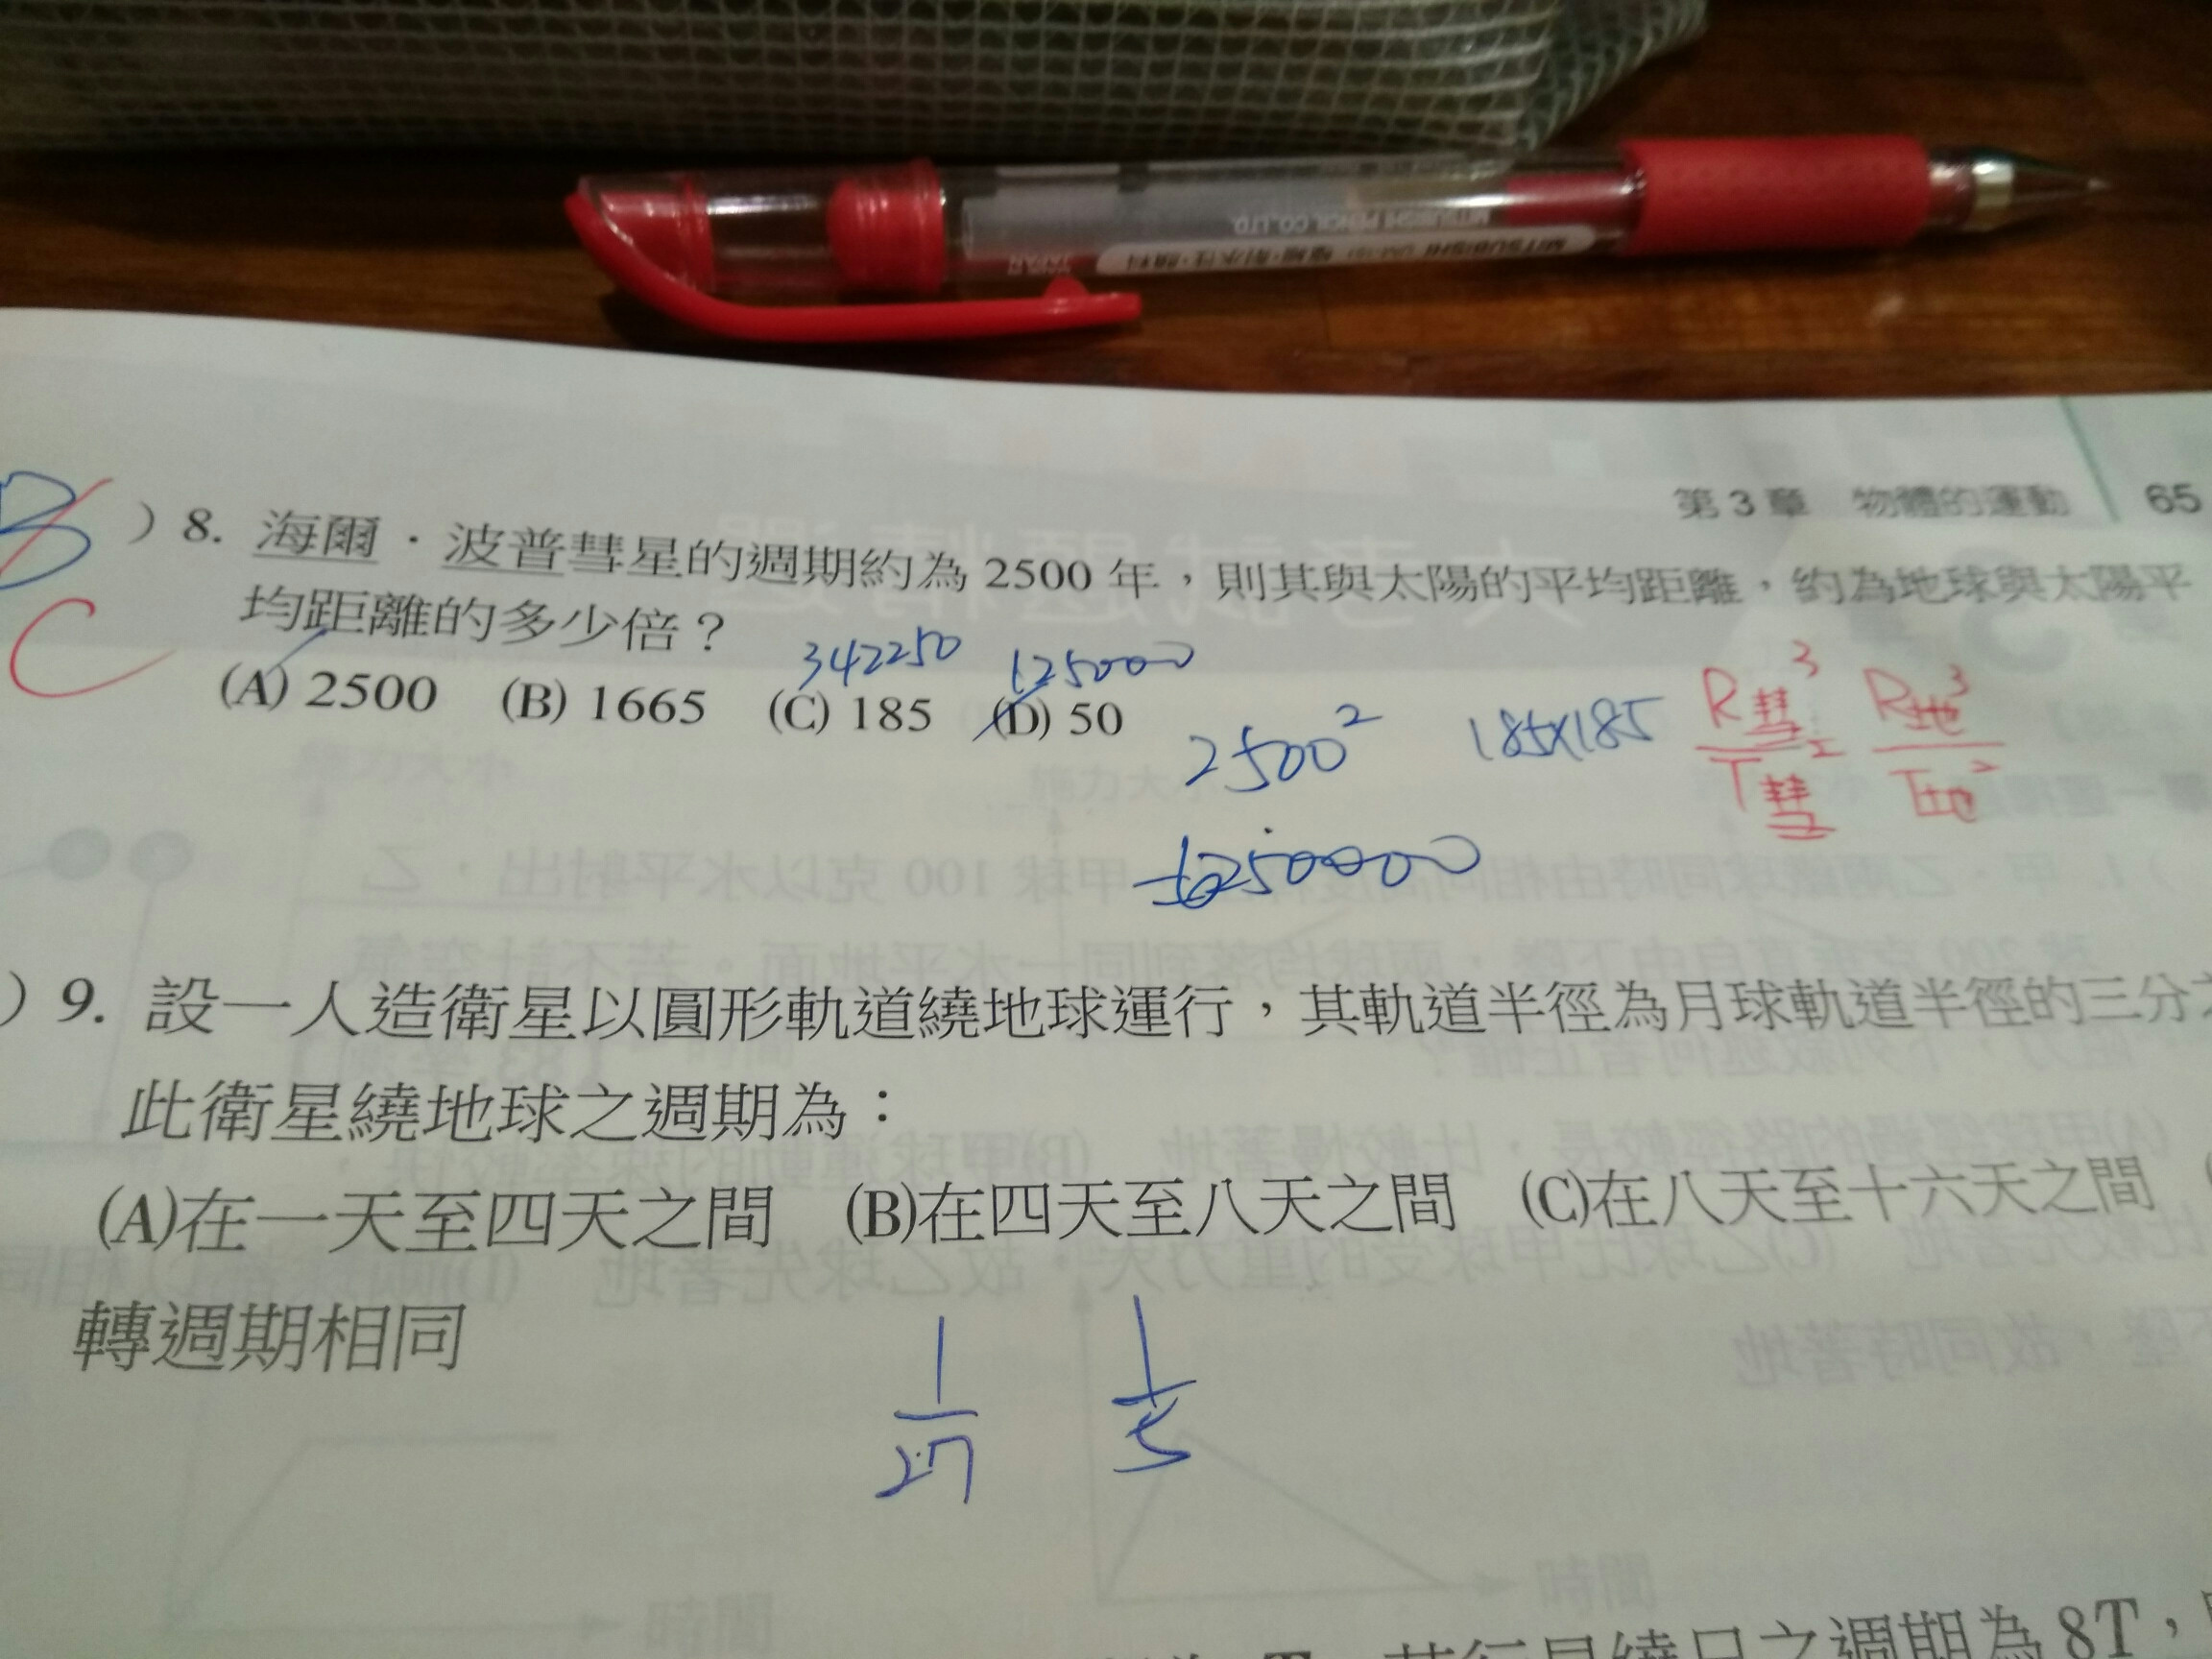 MITSUBISHI PENCIL CO.,LTD.
MITSUBISHI
JAPAN
第3章 物體的運動 65
B
)8. 海爾．波普彗星的週期約為 2500 年，則其與太陽的平均距離，約為地球與太陽平
均距離的多少倍？
C
342250 125000
(A) 2500 (B) 1665 (C) 185 (D) 50
2500² 185×185 R彗³ R地³
T彗² T地²
6250000
)9. 設一人造衛星以圓形軌道繞地球運行，其軌道半徑為月球軌道半徑的三分
此衛星繞地球之週期為：
(A)在一天至四天之間 (B)在四天至八天之間 (C)在八天至十六天之間
轉週期相同
1/27 1/5
星繞日之週期為 8T，